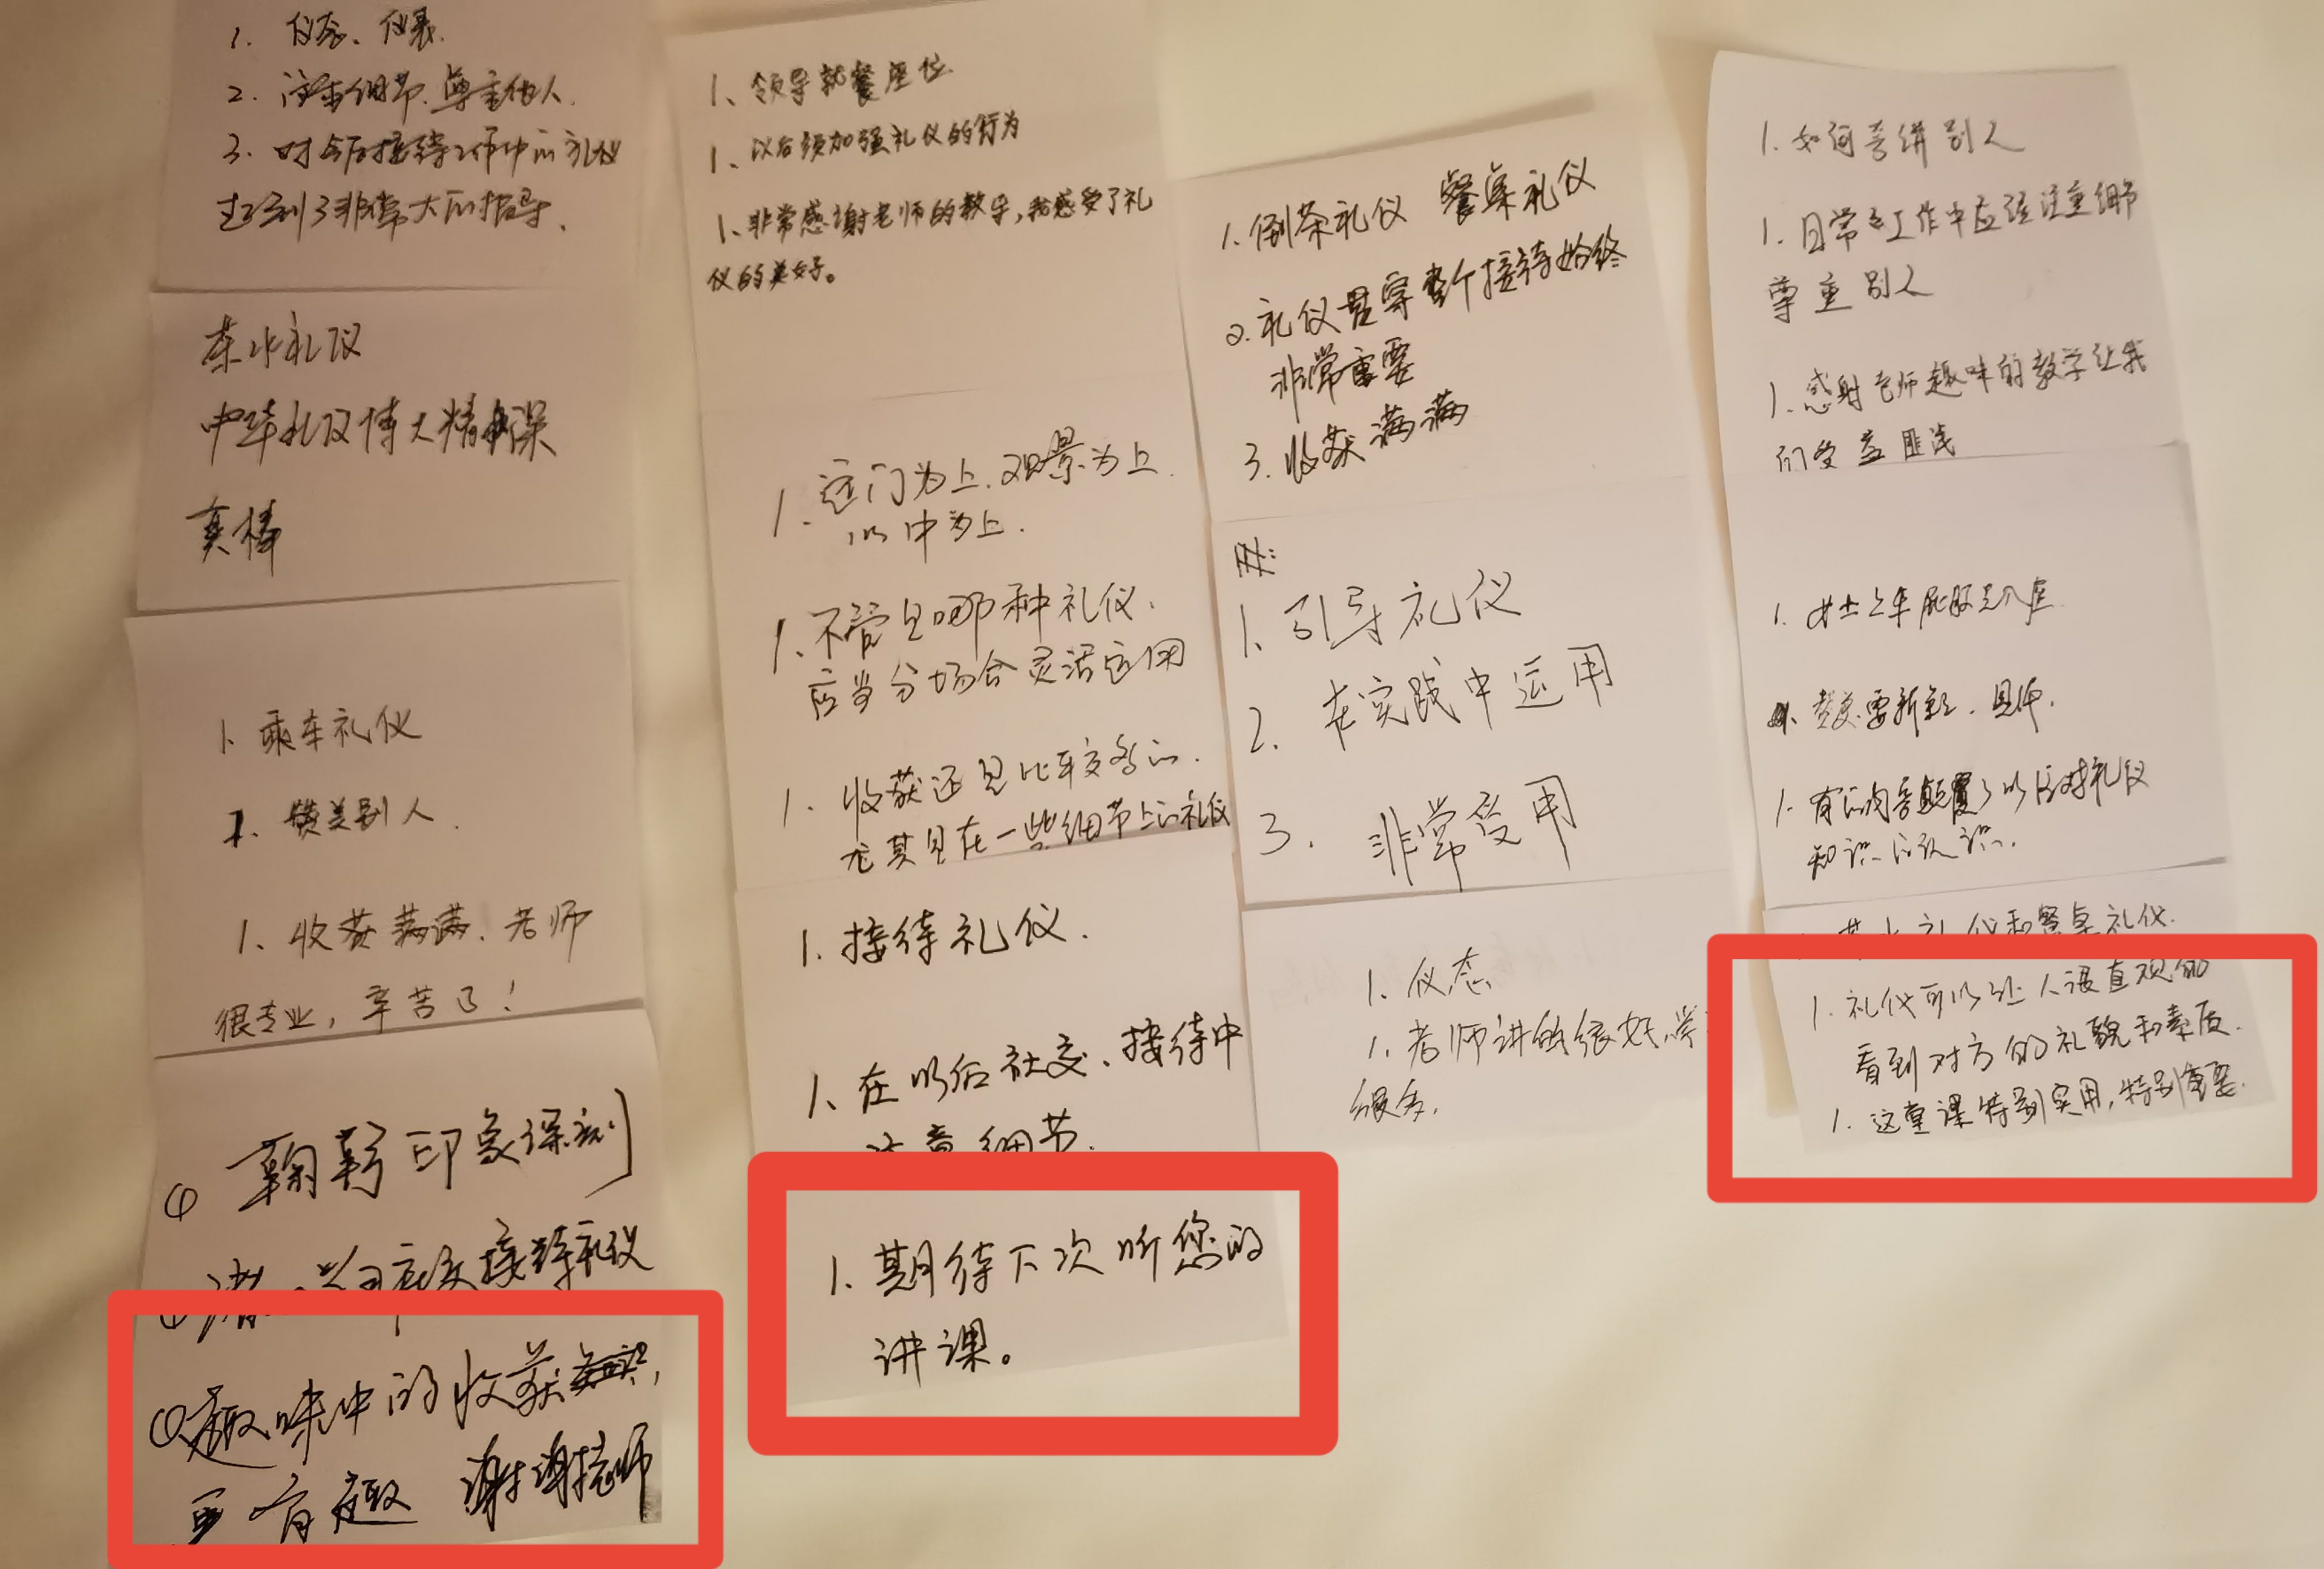 1. 仪态、仪表.
2. 注重细节.尊重他人.
3. 对今后接待工作中的礼仪
起到了非常大的指导.
茶水礼仪
中华礼仪博大精深
真棒
1. 乘车礼仪
1. 赞美别人.
1. 收获满满!老师
很专业,辛苦了!
① 鞠躬印象深刻
接待礼仪
①趣味中的收获
更有趣 谢谢老师
1、领导就餐座位
1、以后须加强礼仪的行为
1、非常感谢老师的教导,我感受了礼
仪的美好。
1. 远门为上.观景为上.
以中为上.
1. 不管是哪种礼仪.
应当分场合灵活运用
1. 收获还是比较多的.
尤其是在一些细节上的礼仪
1. 接待礼仪.
1. 在以后社交、接待中
注意细节.
1. 期待下次听您的
讲课。
1. 倒茶礼仪 餐桌礼仪
2. 礼仪贯穿整个接待始终
非常重要
3. 收获满满
1. 引导礼仪
2. 在实践中运用
3. 非常受用
1. 仪态
1. 老师讲的很好,学
很多.
1. 如何夸讲别人
1. 日常工作中应该注重细节
尊重别人
1. 感射老师趣味的教学让我
们受益匪浅
1. 女士上车屁股先入座
1. 赞美要新颖、具体.
1. 有的内容颠覆了以后对礼仪
知识的认识.
礼仪和餐桌礼仪.
1. 礼仪可以让人很直观的
看到对方的礼貌和素质.
1. 这堂课特别实用,特别重要.